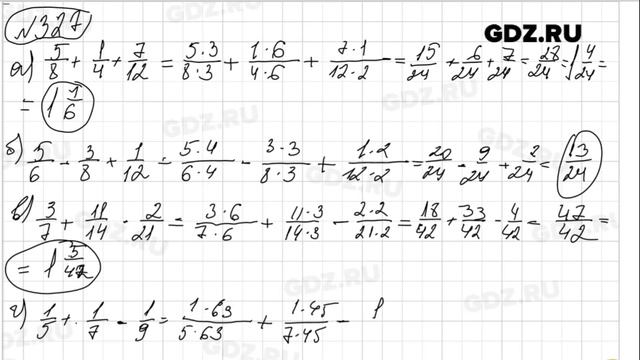 №327
GDZ.RU
а) 5/8 + 1/4 + 7/12 = 5·3/8·3 + 1·6/4·6 + 7·1/12·2 = 15/24 + 6/24 + 7/24 = 28/24 = 1 4/24 =
= 1 1/6
б) 5/6 - 3/8 + 1/12 = 5·4/6·4 - 3·3/8·3 + 1·2/12·2 = 20/24 - 9/24 + 2/24 = 13/24
в) 3/7 + 11/14 - 2/21 = 3·6/7·6 + 11·3/14·3 - 2·2/21·2 = 18/42 + 33/42 - 4/42 = 47/42 =
= 1 5/42
г) 1/5 + 1/7 - 1/9 = 1·63/5·63 + 1·45/7·45 - 1